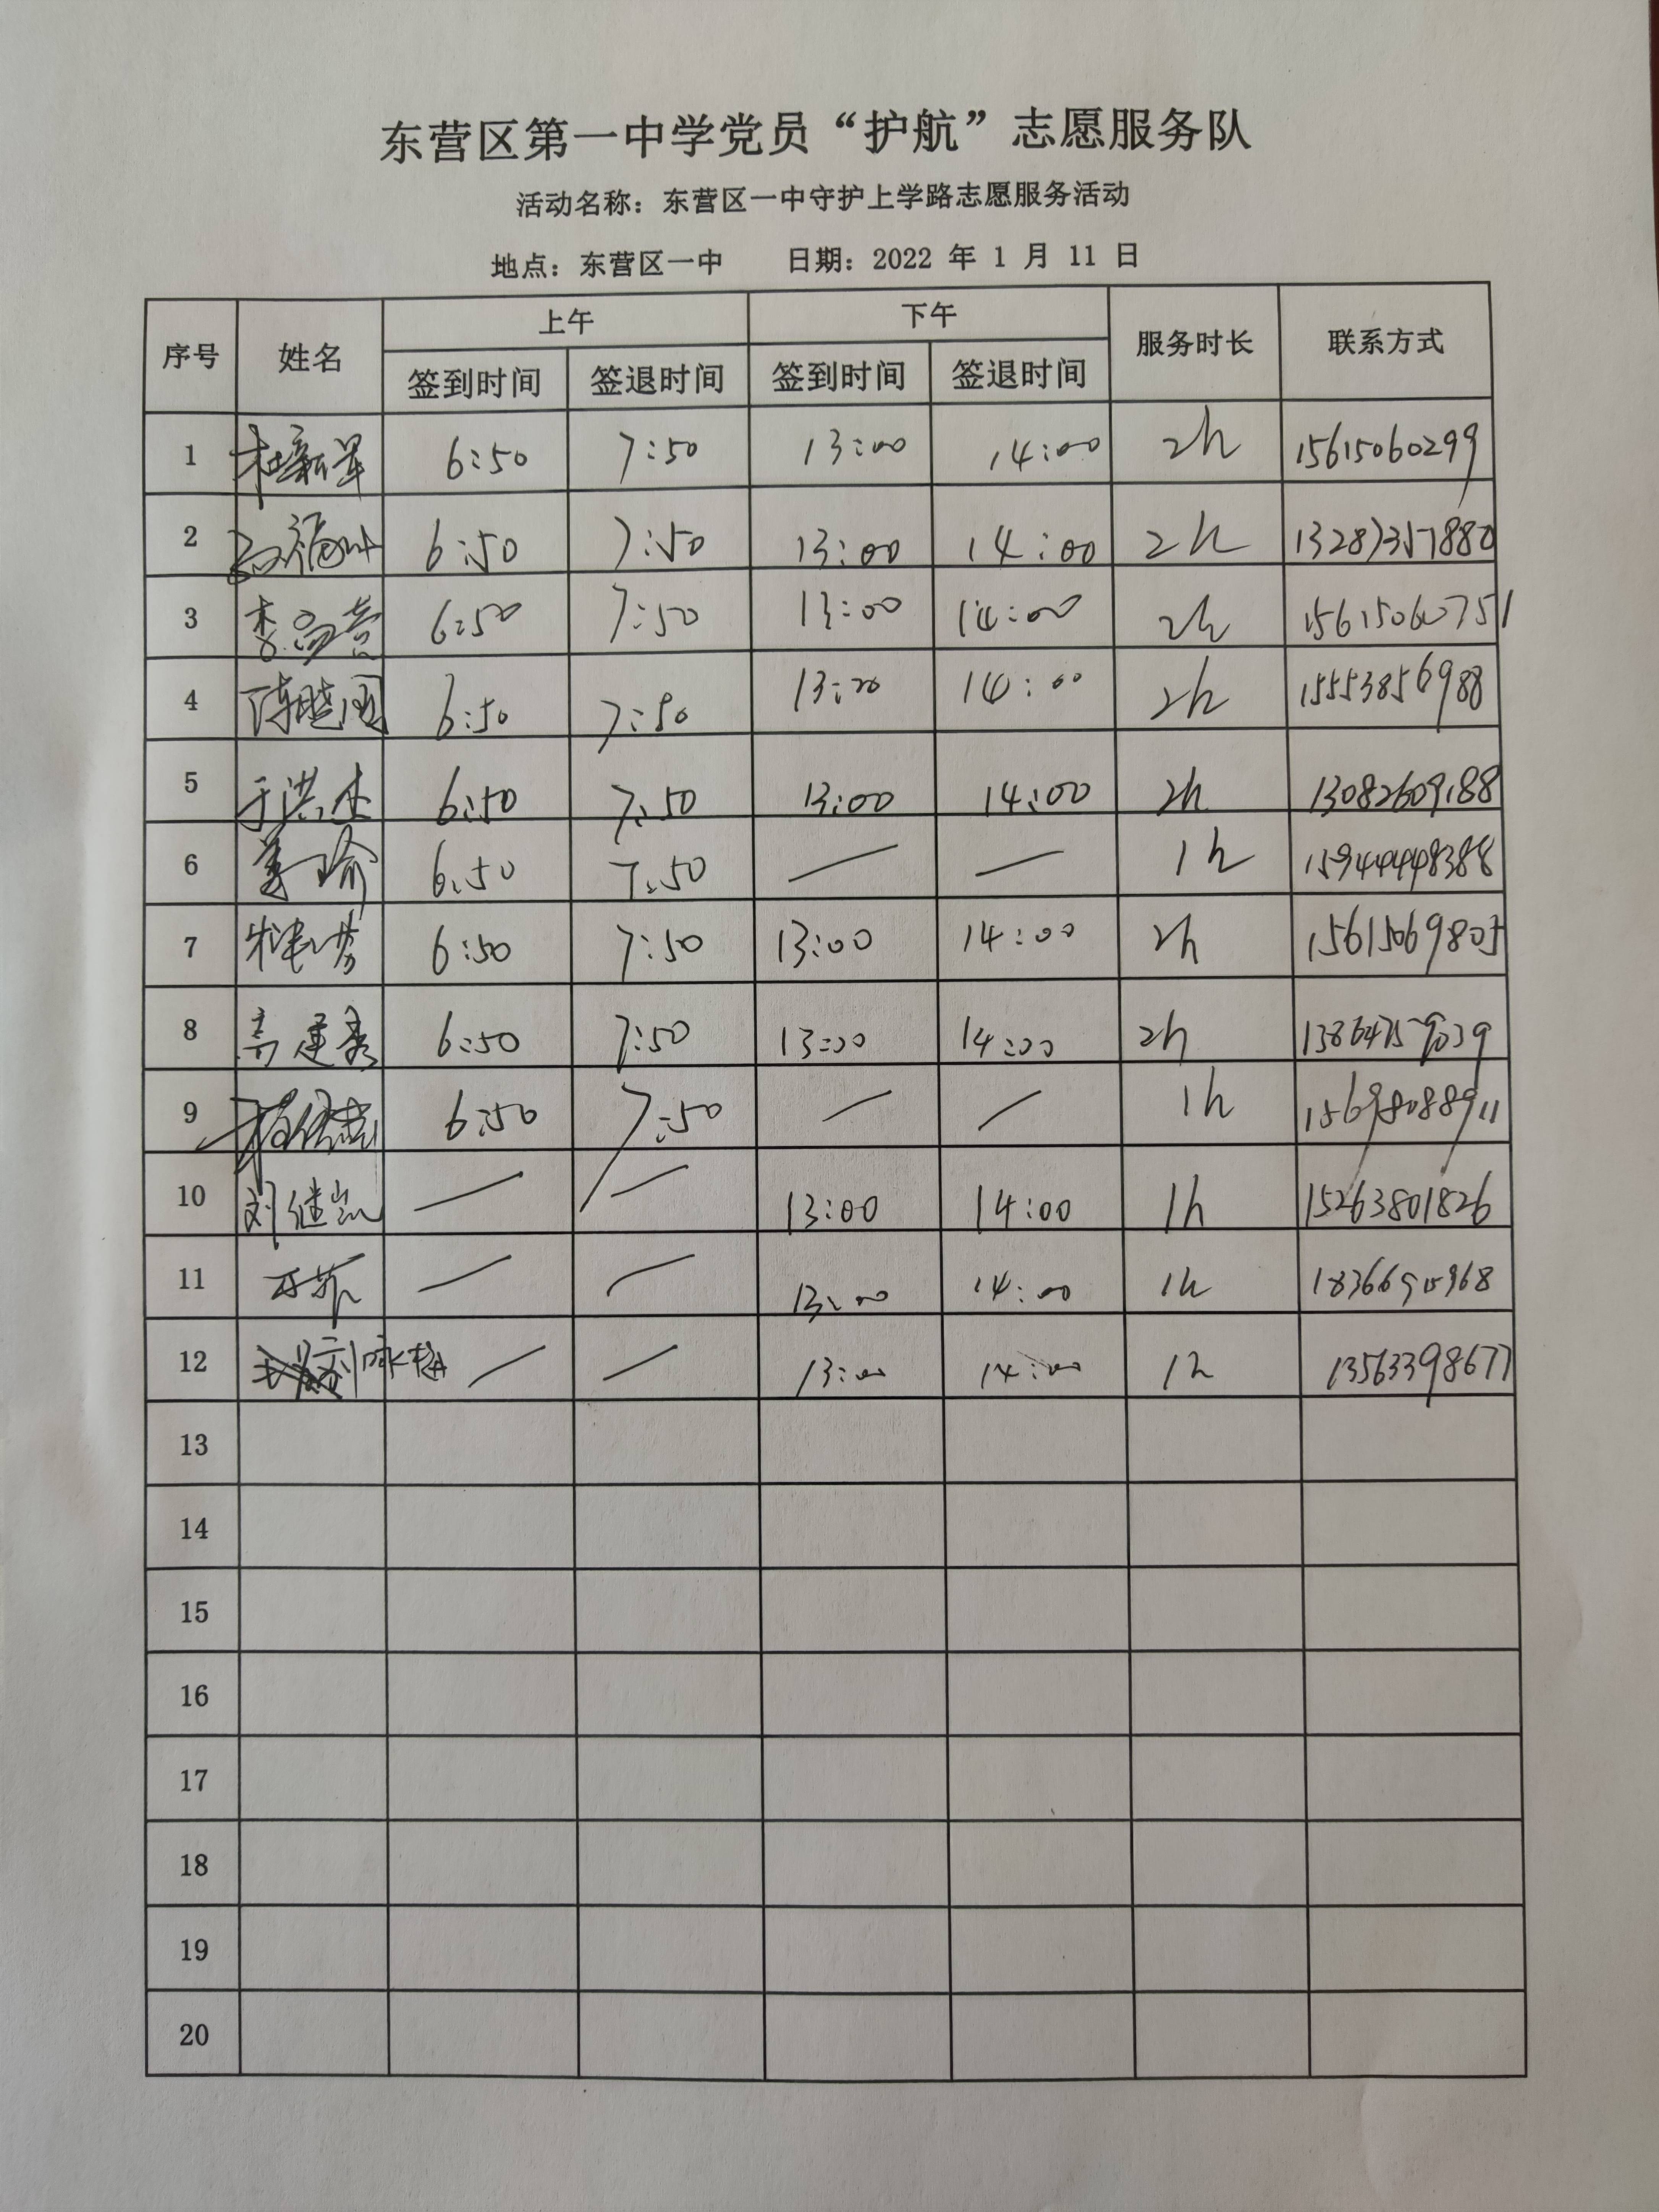 东营区第一中学党员“护航”志愿服务队
活动名称：东营区一中守护上学路志愿服务活动
地点：东营区一中 日期：2022 年 1 月 11 日
序号 姓名 上午 下午 服务时长 联系方式
签到时间 签退时间 签到时间 签退时间
1 杜新军 6:50 7:50 13:00 14:00 2h 15615060299
2 6:50 7:50 13:00 14:00 2h 13287357880
3 6:50 7:50 13:00 14:00 2h 15615060751
4 陈晓国 6:50 7:50 13:00 14:00 2h 15553856988
5 于洪杰 6:50 7:50 13:00 14:00 2h 13082609188
6 姜瑜 6:50 7:50 — — 1h
7 6:50 7:50 13:00 14:00 2h 15615069805
8 高建秀 6:50 7:50 13:00 14:00 2h
9 6:50 7:50 — — 1h 15698088911
10 刘继凯 — — 13:00 14:00 1h 15263801826
11 — — 13:00 14:00 1h
12 刘咏梅 — — 13:00 14:00 1h 13563398677
13
14
15
16
17
18
19
20